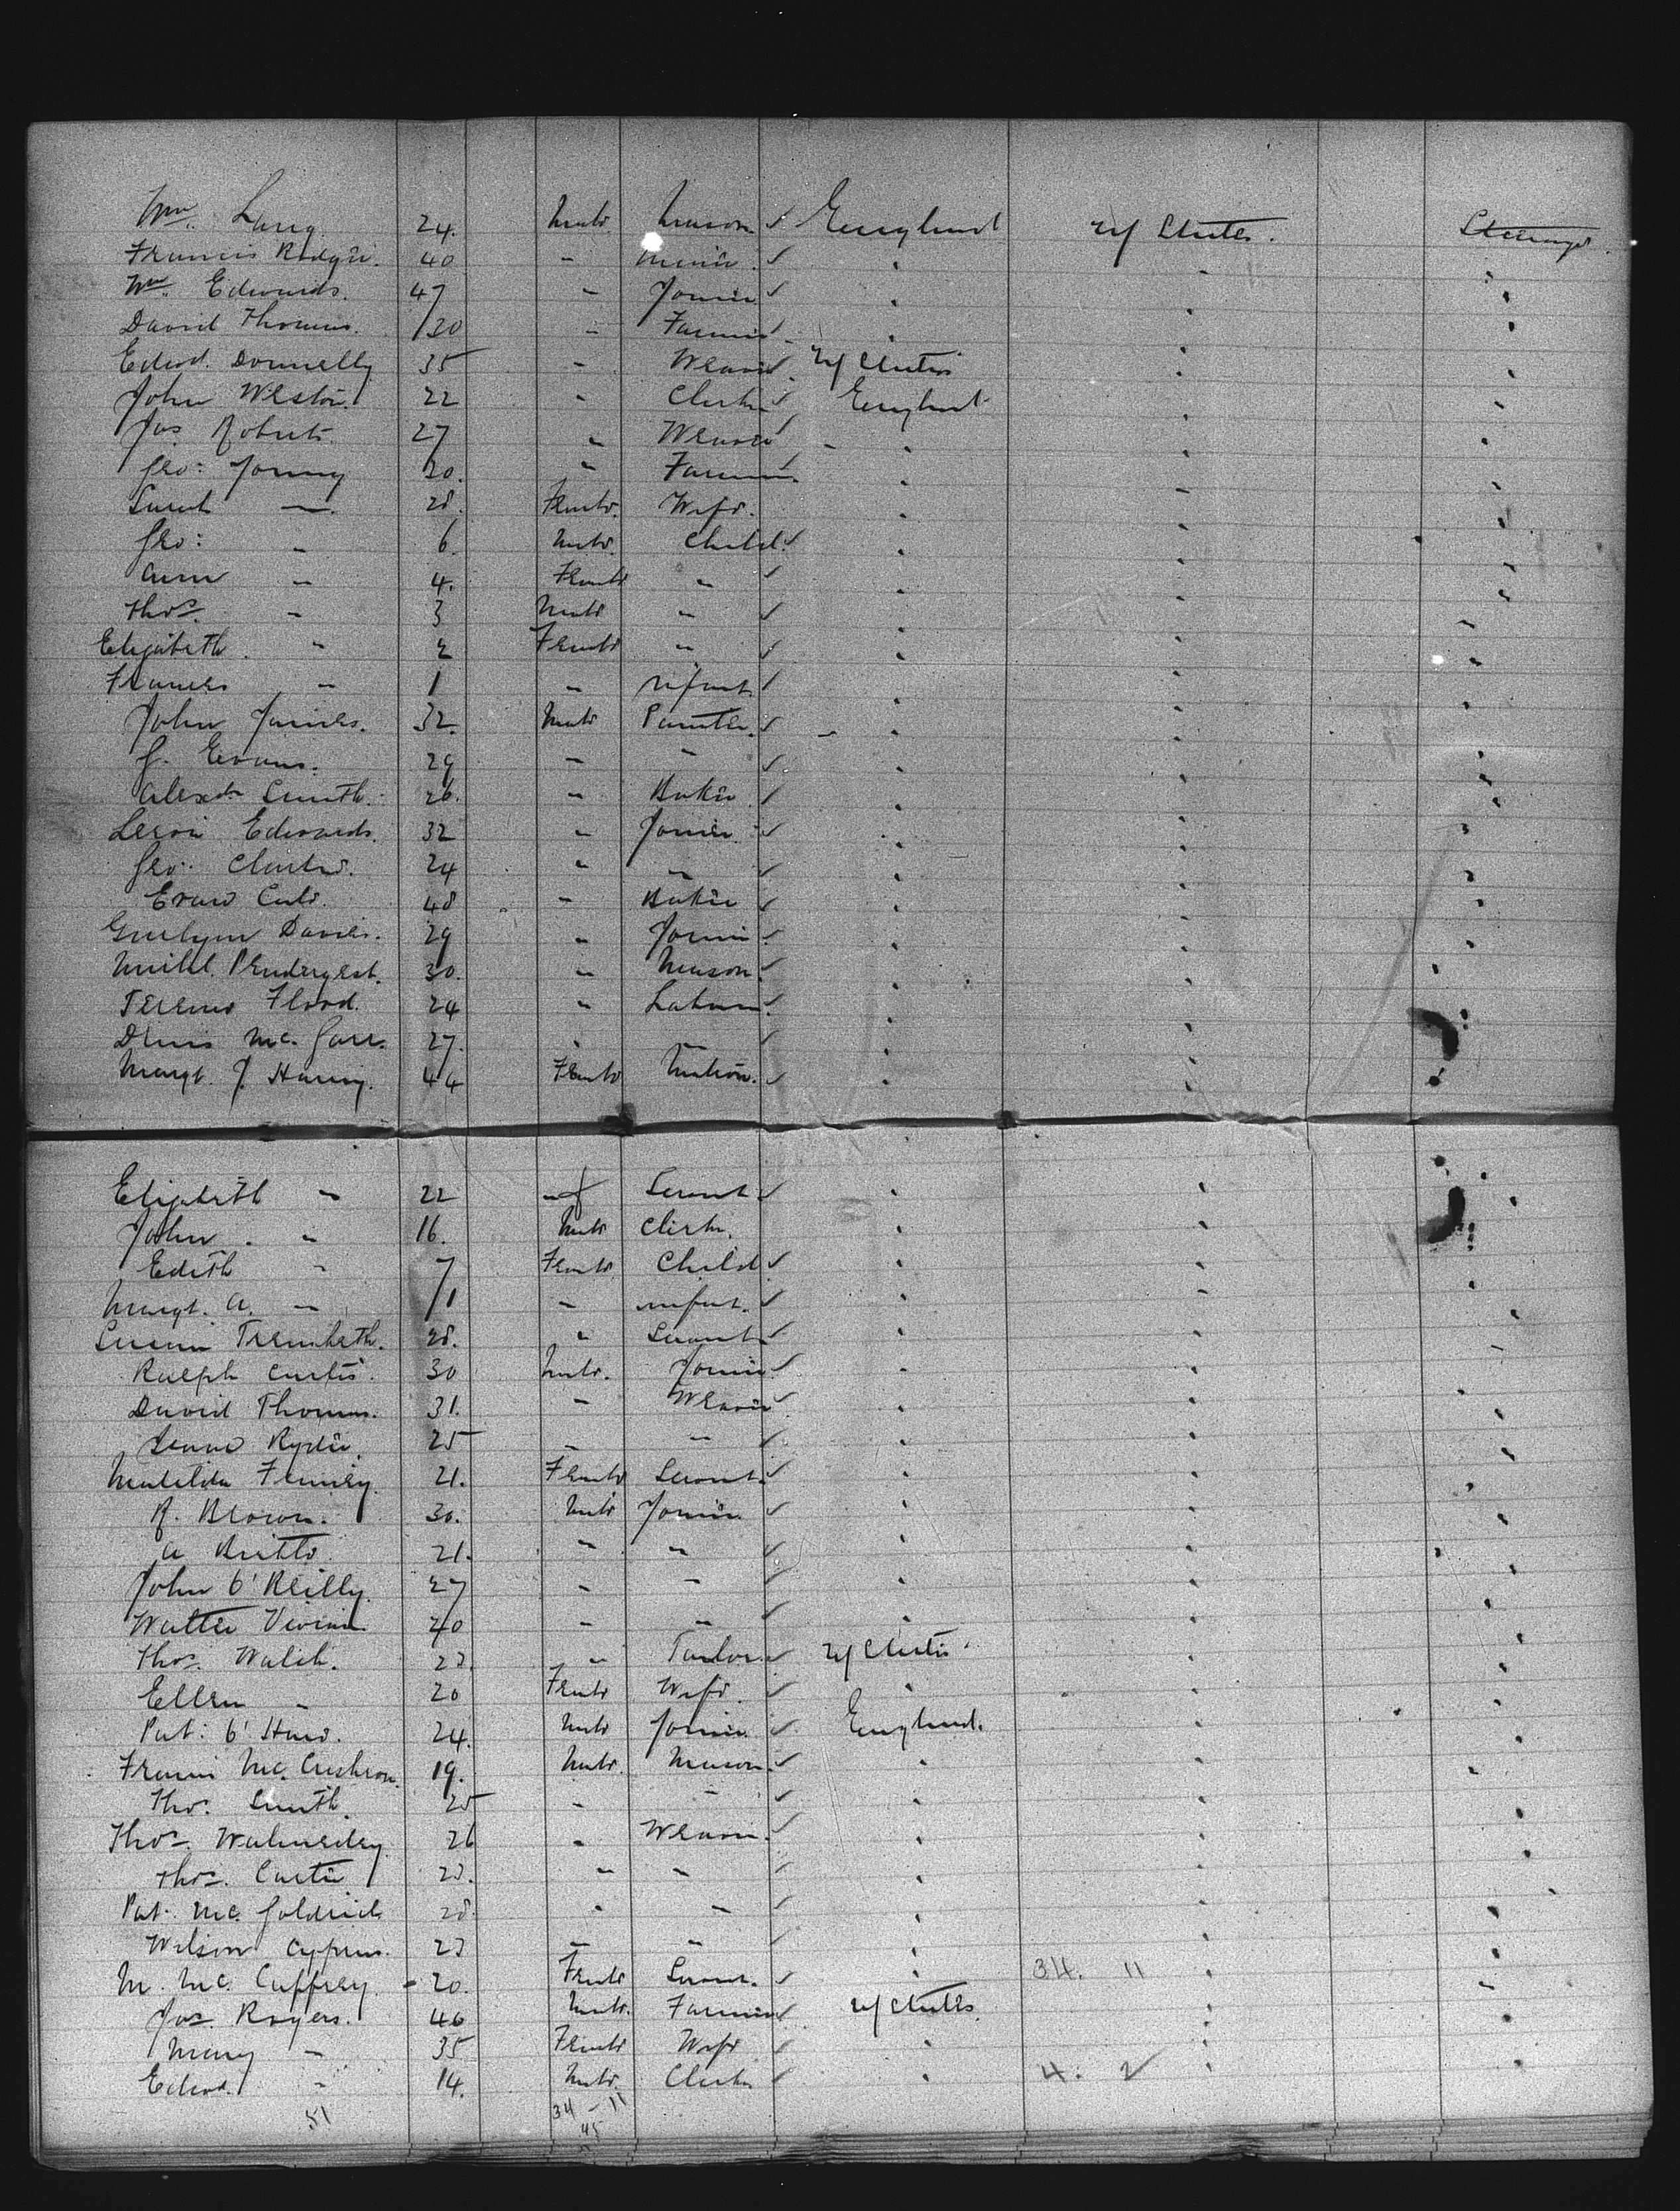 Wm. Lang. 24. Male Mason England U/ States. Steerage.
Francis Rodger. 40 " Miner. " " "
Wm. Edwards. 47 " Joiner " " "
David Thomas. 30 " Farmer " " "
Edwd. Donnelly 35 " Weaver U/ States " "
John Weston. 22 " Clerk England " "
Jas. Roberts. 27 " Weaver " " "
Geo: Young 30. " Farmer. " " "
Sarah " 28. Female. Wife. " " "
Geo: " 6. Male. Child. " " "
Ann " 4. Female " " " "
Thos. " 3 Male " " " "
Elizabeth. " 2 Female " " " "
Frances " 1 " Infant. " " "
John James. 32. Male Painter. " " "
J. Evans. 29 " " " " "
Alexdr Smith. 26. " Baker " " "
Edwards. 32 " Joiner. " " "
Geo: Charles. 24 " " " " "
Evan 48 " Baker " " "
Gwilym Davies. 29 " Joiner. " " "
Michl. Pendergest. 30. " Mason. " " "
Terence Flood. 24 " Labourer. " " "
Denis Mc. Garr. 27. " " " " "
Margt. J. 44 Female Matron. " " "
Elizabeth " 22 " Servant " " "
John. " 16. Male Clerk. " " "
Edith " 7 Female Child " " "
Margt. A. " 1 " Infant. " " "
Susan Trembeth. 28. " Servant " " "
Ralph Curtis. 30 Male. Joiner. " " "
David Thomas. 31. " Weaver " " "
Ryder 25 " " " " "
Matilda 21. Female Servant. " " "
R. Brown. 30. Male Joiner " " "
A 21. " " " " "
John O'Reilly. 27 " " " " "
Walter Vivian. 40 " " " " "
Thos. Walsh. 23. " Tailor. U/ States. " "
Ellen " 20 Female Wife. " " "
Pat: O'Hare. 24. Male Joiner England. " "
Francis Mc. 19. Male. Mason " " "
Thos. Smith. 25 " " " " "
Thos. Walmesley. 26 " Weaver. " " "
Thos. 23. " " " " "
Pat. Mc. Goldrick 28. " " " " "
Wilson Cyprus. 23 " " " " "
M. Mc. Caffrey. 20. Female Servant. " 34. 11 " "
Jas. Rogers. 46 Male. Farmer U/ States " "
Mary " 35 Female Wife " " "
Edwd. " 14. Male. Clerk " 4. 2 " "
51 34 - 11
45